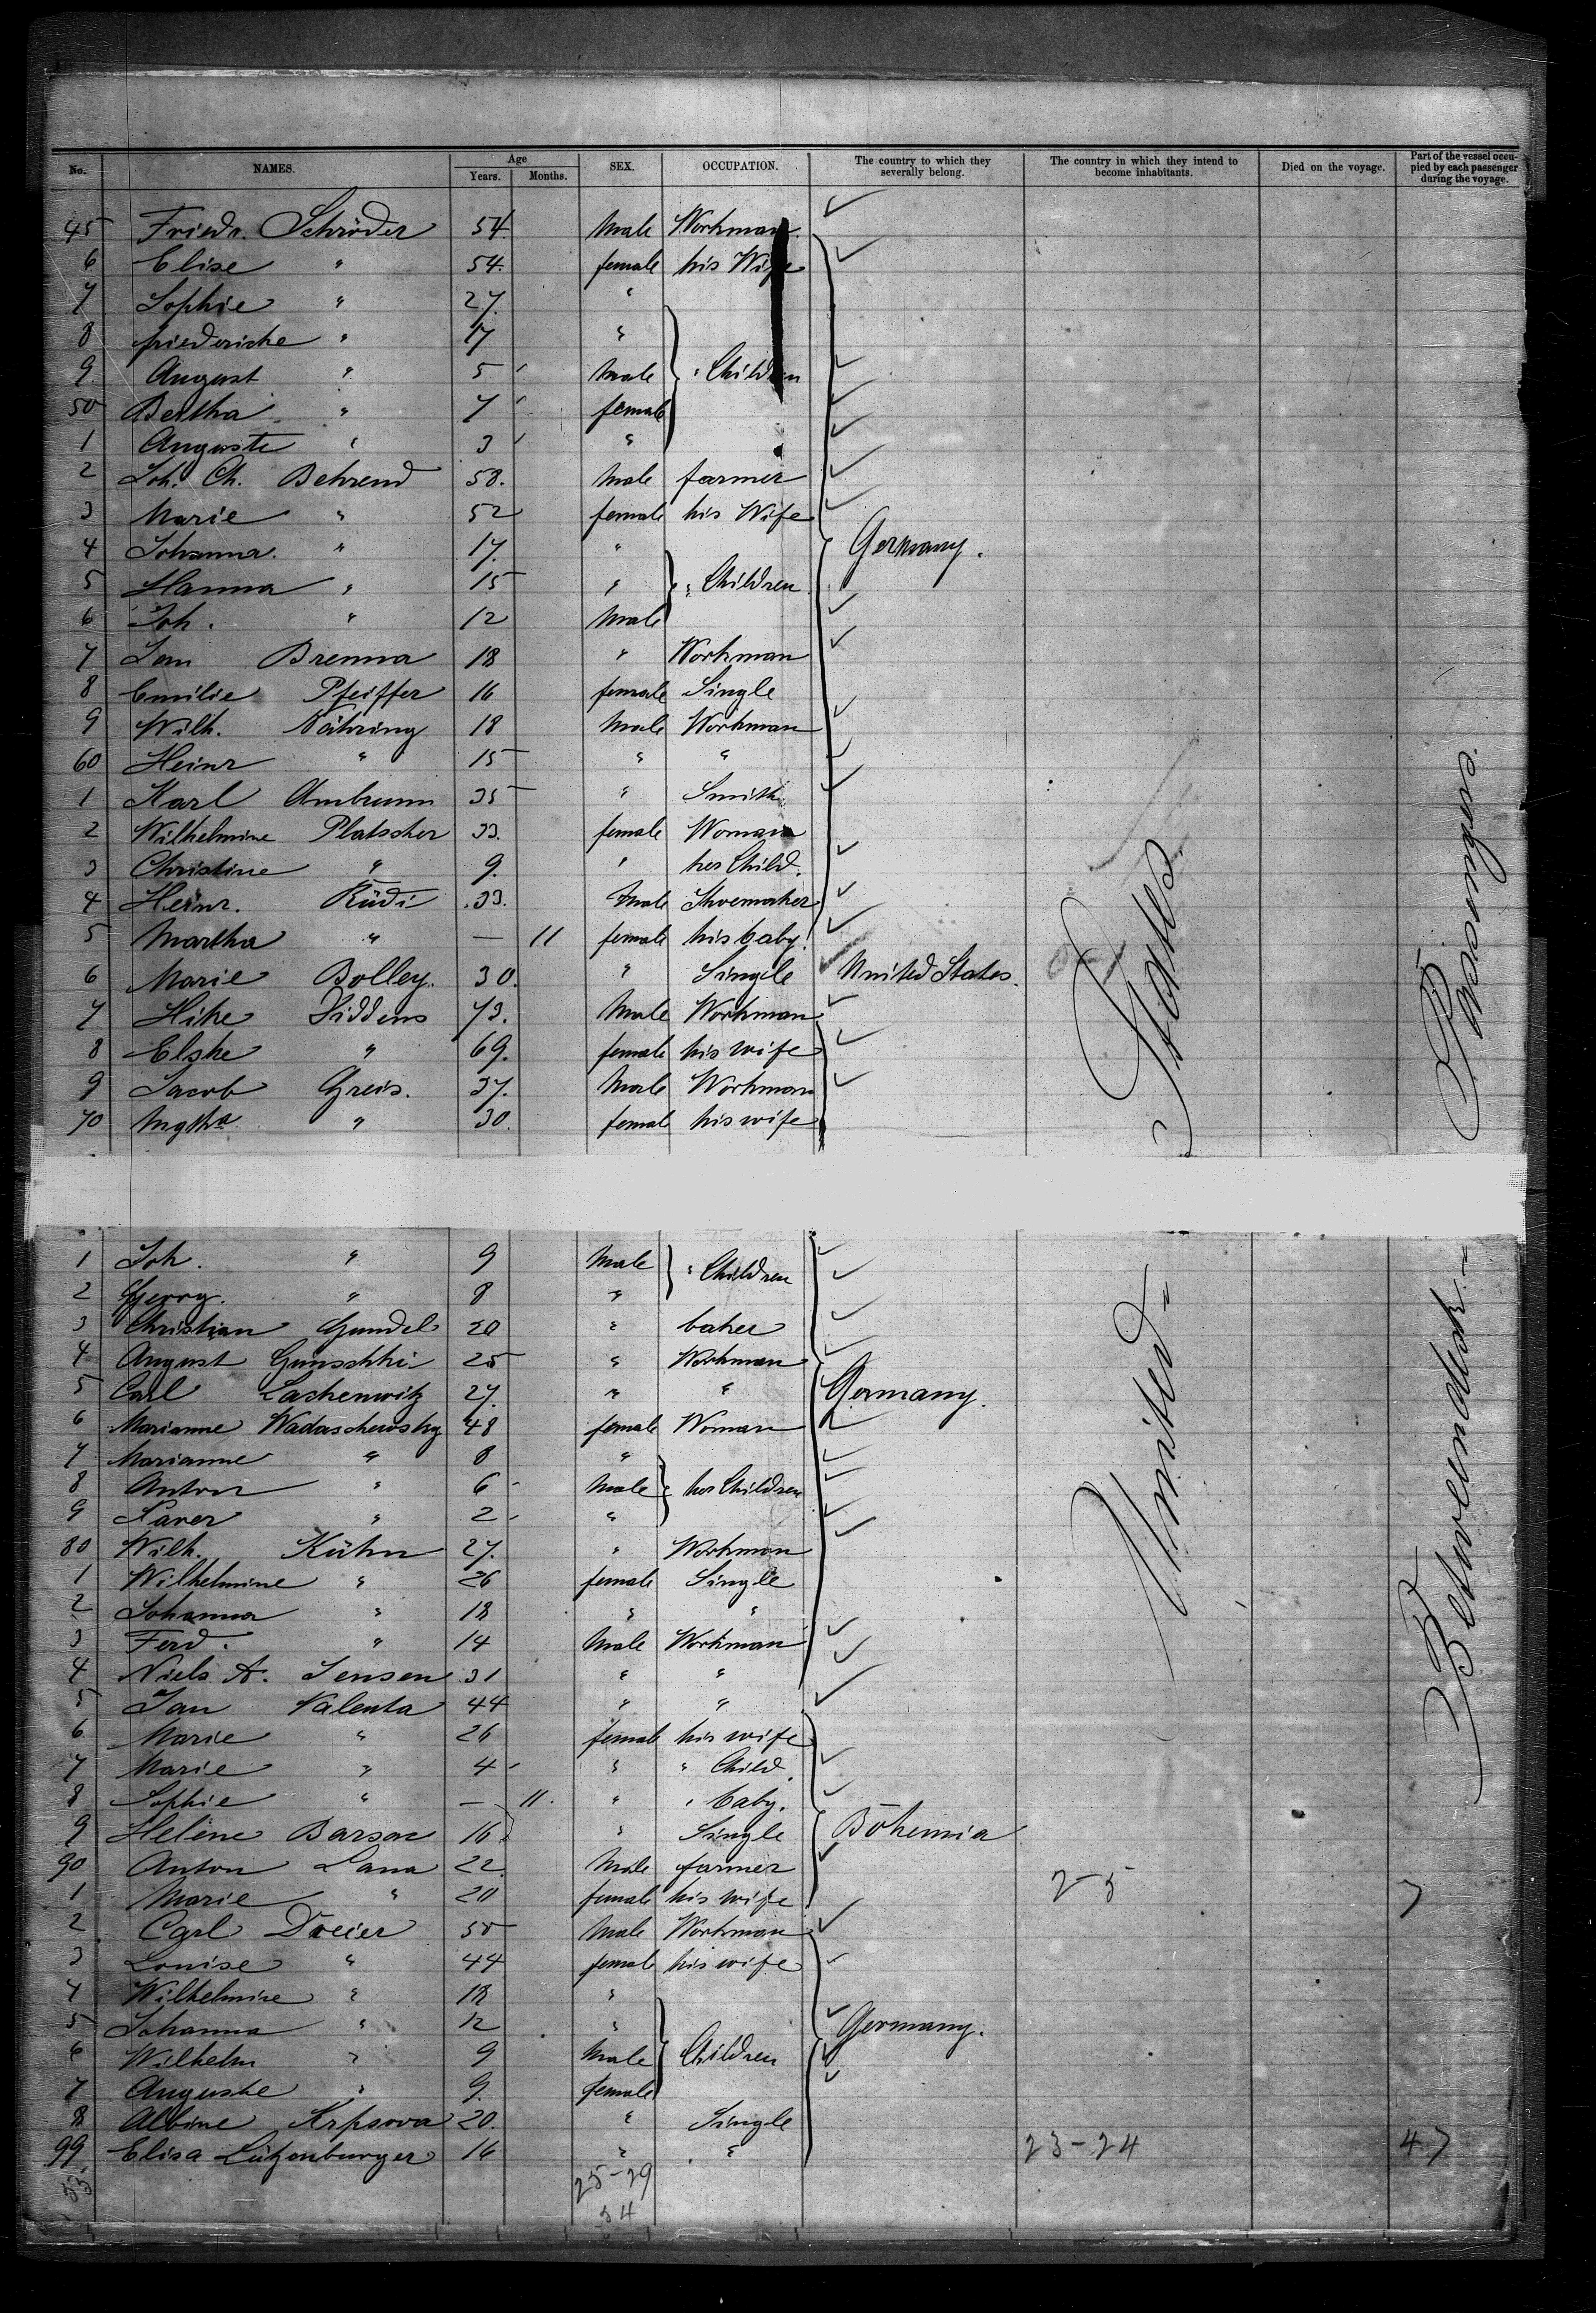 No. NAMES. Age Years. Months. SEX. OCCUPATION. The country to which they severally belong. The country in which they intend to become inhabitants. Died on the voyage. Part of the vessel occupied by each passenger during the voyage.
45 Friedr. Schröder 54. Male Workman.
6 Elise " 54. female his Wife
7 Sophie " 27. "
8 friedericke " 17 "
9 August " 5 Male " Children
50 Bertha " 7 female
1 Auguste " 3 "
2 Joh. Ch. Behrend 58. Male farmer
3 Marie " 52 female his Wife
4 Johanna " 17. " Germany.
5 Hanna " 15 " " Children
6 Joh. " 12 Male
7 Brenna 18 " Workman
8 Emilie Pfeiffer 16 female Single
9 Wilh. Nähring 18 Male Workman
60 Heinr " 15 " "
1 Karl Ambrunn 35 " Smith
2 Wilhelmine Platscher 33. female Woman
3 Christine " 9. " her Child.
4 Heinr. Rüdi 33. Male Shoemaker
5 Martha " — 11 female his baby.
6 Marie Bolley. 30. " Single United States.
7 Hike Siddens 73. Male Workman
8 Elske " 69. female his wife
9 Jacob Greis. 37. Male Workman
70 Mgtha " 30. female his wife
1 Joh. " 9 Male " Children
2 Georg. " 8 "
3 Christian Gundel 20 " baker
4 August Gunschki 25 " Workman
5 Carl Lachenwitz 27. " " Germany.
6 Marianne Wadaschewsky 48 female Woman
7 Marianne " 8 "
8 Anton " 6 Male her Children
9 Xaver " 2 "
80 Wilh. Kühn 27. " Workman
1 Wilhelmine " 26 female Single
2 Johanna " 18 " "
3 Ferd. " 14 Male Workman
4 Niels A. Jensen 31 " "
5 Jan Valenta 44 " "
6 Marie " 26 female his wife
7 Marie " 4 " " Child
8 Sophie " — 11. " " baby.
9 Helene Barson 16 " Single Böhemia
90 Anton Lana 22 Male farmer
1 Marie " 20 female his wife 25 7
2 Carl Dreier 50 Male Workman
3 Louise " 44 female his wife
4 Wilhelmine " 18 "
5 Johanna " 12 " Germany.
6 Wilhelm " 9 Male Children
7 Auguste " 9. female
8 Albine Krpsova 20. " Single
99 Elisa Lützenburger 16 " " 23-24 47
55 25-29
54
United States
Betweendeck Passengers.